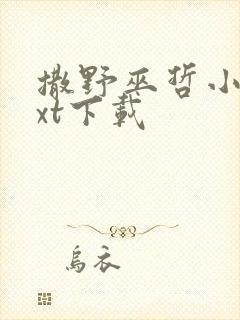 撒野巫哲小
xt下载
乌衣